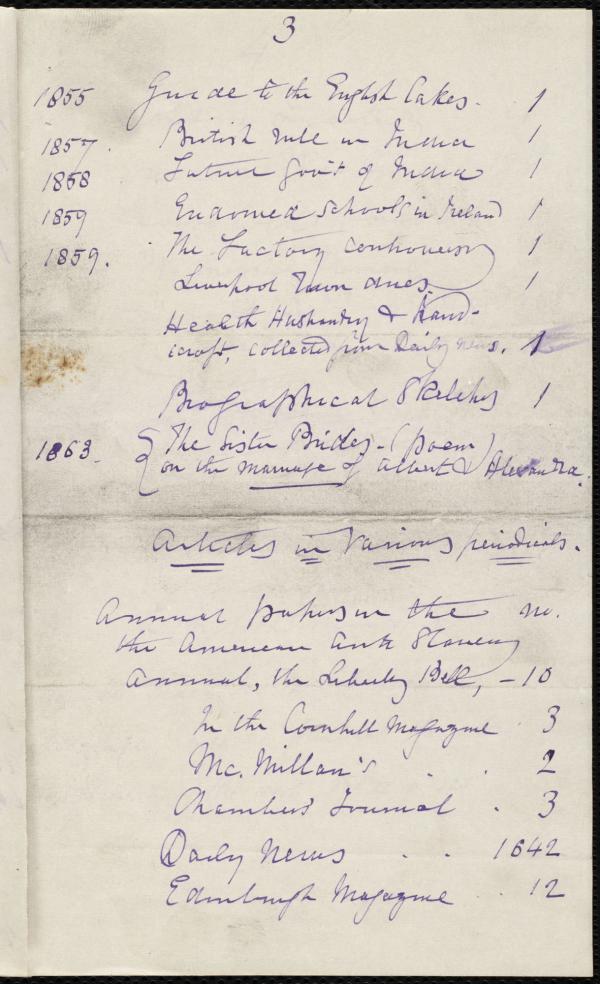 3
1855 Guide to the English Lakes. 1
1857. British rule in India 1
1858 Future Gov't of India 1
1859 Endowed schools in Ireland 1
1859. The Factory controversy 1
Liverpool Town dues. 1
Health Husbandry & Handi-
craft, collected from Daily News. 1
Biographical Sketches 1
1863. { The Sister Brides. (poem)
on the marriage of Albert & Alexandra.
Articles in various periodicals.
Annual papers in the no.
the American Anti Slavery
Annual, the Liberty Bell, - 10
In the Cornhill Magazine 3
Mc. Millan's . . 2
Chambers' Journal . 3
Daily News . . 1642
Edinburgh Magazine . 12